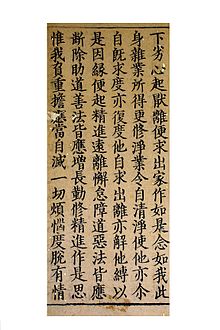 下劣心起厭離便求出家作如是念如我此
身雜業所得更修淨業今自清淨使他亦尒
自既求度亦復度他自求出離亦解他縛以
是因緣便起精進遠離懈怠障道惡法皆應
斷除助道善法皆應增長勤修精進作是思
惟我負重擔應當自滅一切煩惱度脫有情